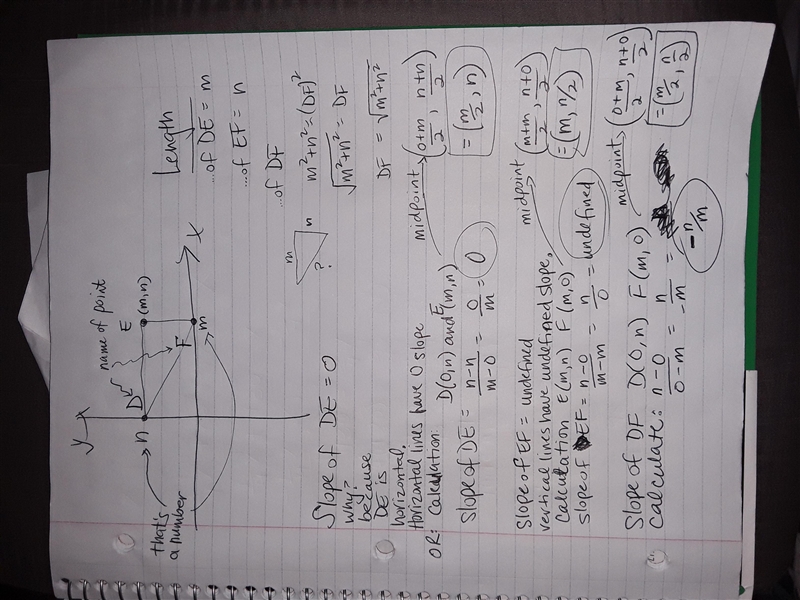 y
name of point
D
E
n
(m,n)
F
m
x
that's
a number
Length
...of DE = m
...of EF = n
...of DF
m
n
?
m²+n²=(DF)²
√m²+n² = DF
DF = √m²+n²
Slope of DE = 0
why?
because
DE is
horizontal.
Horizontal lines have 0 slope
OR: Calculation: D(0,n) and E(m,n)
Slope of DE: = n-n/m-0 = 0/m = 0
midpoint (0+m/2, n+n/2)
= (m/2, n)
Slope of EF = undefined
vertical lines have undefined slope.
Calculation E(m,n) F(m,0)
slope of EF = n-0/m-m = n/0 = undefined
midpoint (m+m/2, n+0/2)
= (m, n/2)
Slope of DF D(0,n) F(m,0)
Calculate: n-0/0-m = n/-m = -n/m
midpoint (0+m/2, n+0/2)
= (m/2, n/2)